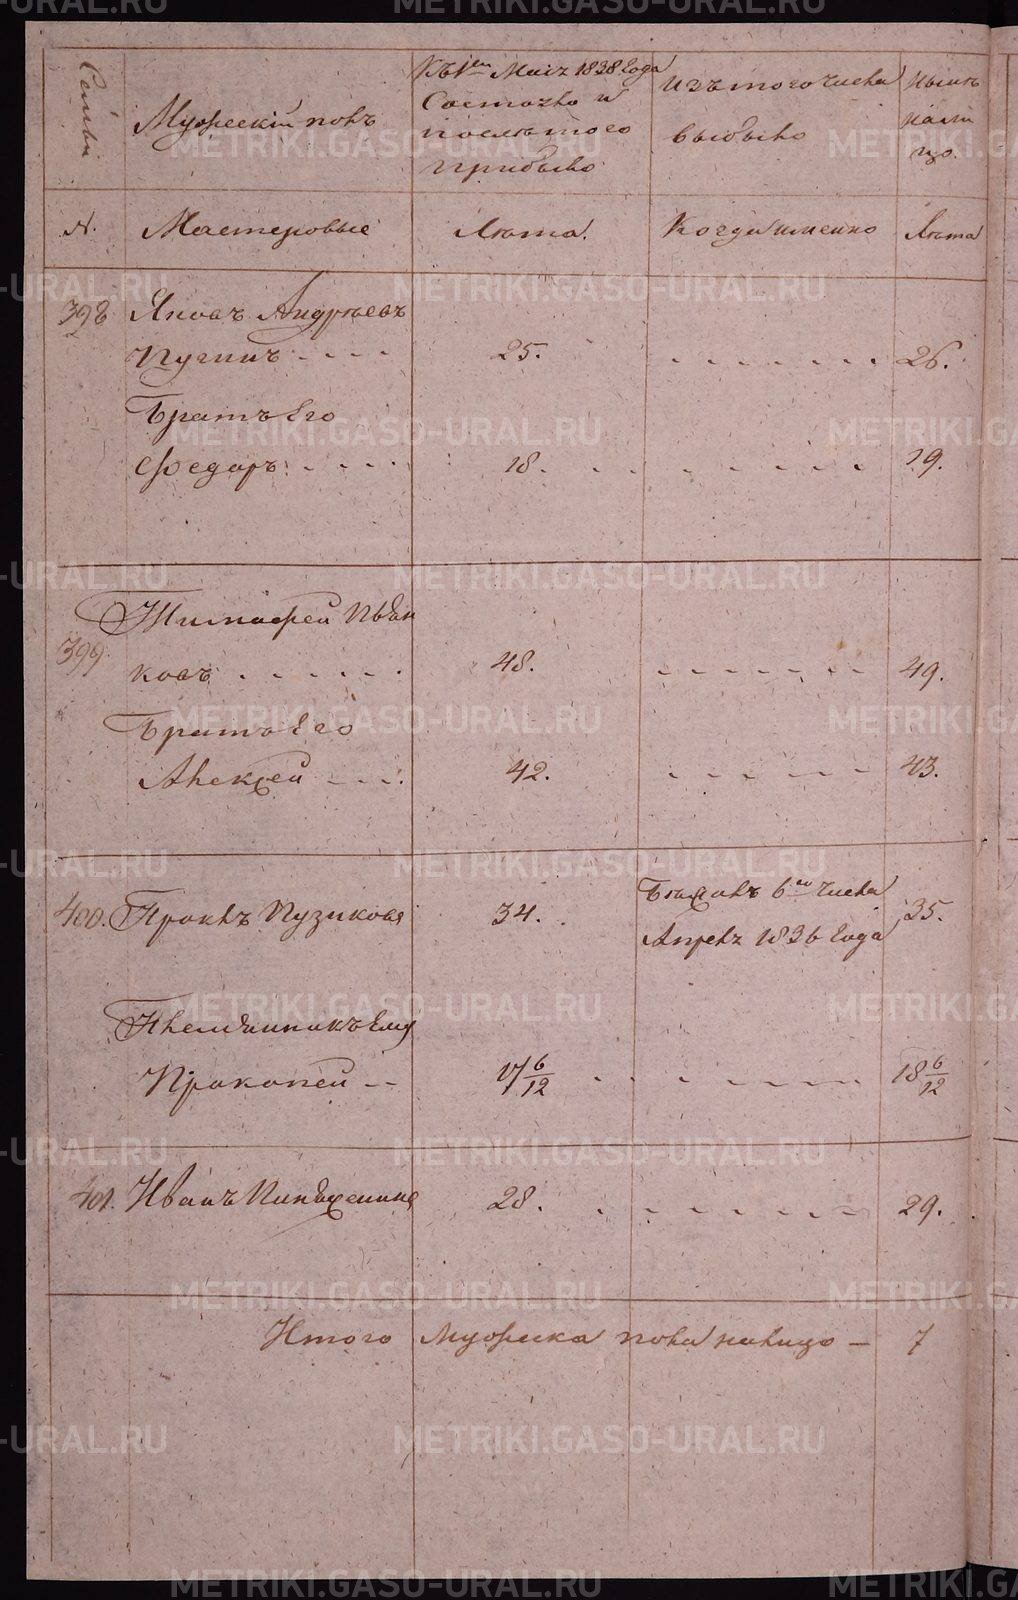 Семьи
Мужескій полъ
Къ 1му Маія 1838 года
Состояло и
послѣ того
прибыло
Изъ того числа
выбыло
Нынѣ
нали
цо.
№.
Мастеровые
Лѣта.
Когда именно
Лѣта
398
Яковъ Андреевъ
25.
26.
Братъ Его
Федоръ
18.
19.
399.
Тимофей
ковъ
48.
49.
Братъ Его
Алексѣй
42.
43.
400. Проклъ Пузиковъ
34.
Бѣжалъ 6го числа
Апрелѧ 1836 года
35.
Племянникъ Ему
Прокопей
17 6/12
18 6/12
401. Иванъ
28.
29.
Итого мужеска пола налицо — 7
METRIKI.GASO-URAL.RU